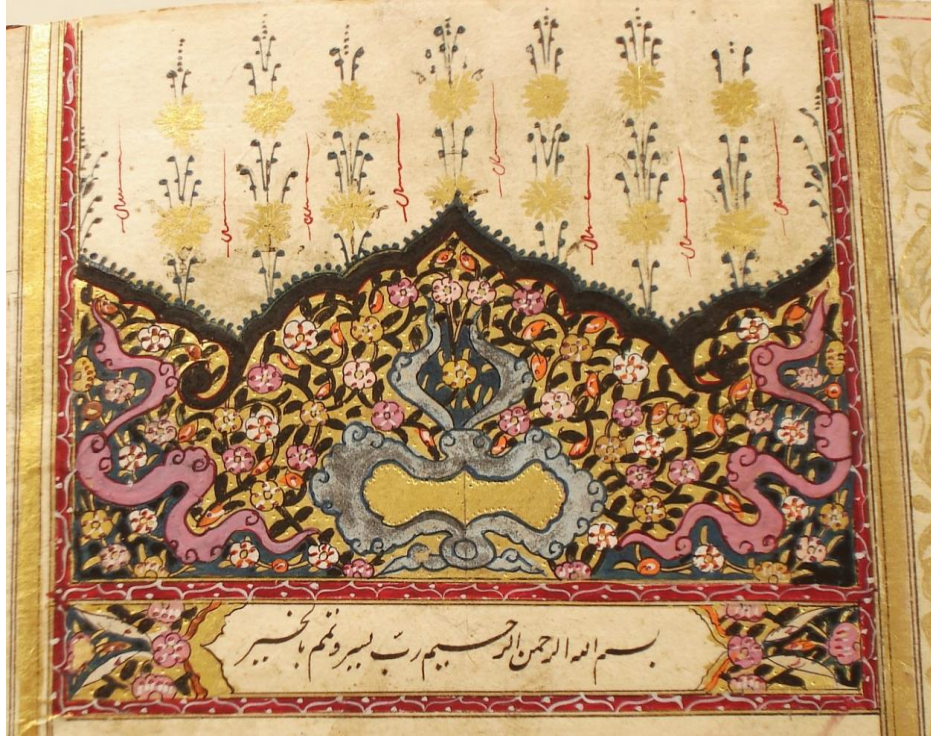 بسم الله الرحمن الرحيم رب يسير وتمم بالخير